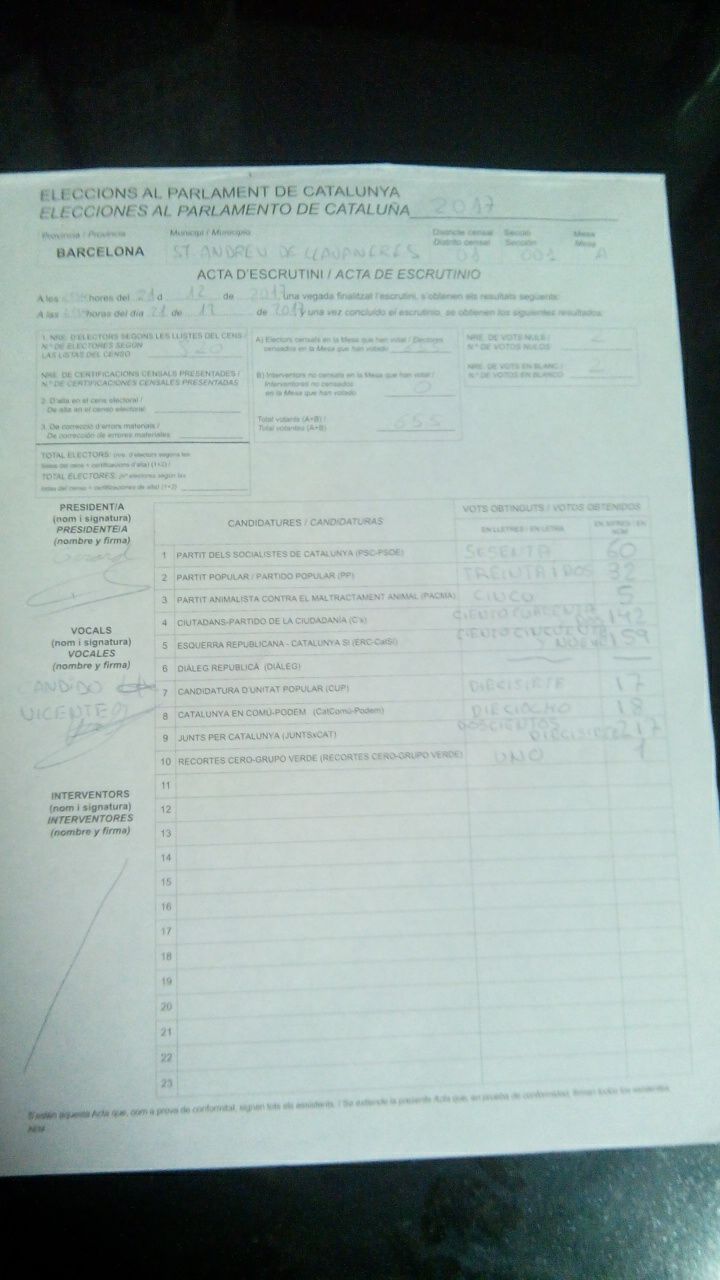 ELECCIONS AL PARLAMENT DE CATALUNYA
ELECCIONES AL PARLAMENTO DE CATALUÑA 2017
Província / Provincia Municipi / Municipio Districte censal Secció Mesa
Distrito censal Sección Mesa
BARCELONA ST. ANDREU DE LLAVANERES 01 001 A
ACTA D'ESCRUTINI / ACTA DE ESCRUTINIO
A les hores del 21 d 12 de 2017 una vegada finalitzat l'escrutini, s'obtenen els resultats següents:
A las horas del día 21 de 12 de 2017 una vez concluido el escrutinio, se obtienen los siguientes resultados:
1. NRE. D'ELECTORS SEGONS LES LLISTES DEL CENS /
N.º DE ELECTORES SEGÚN
LAS LISTAS DEL CENSO
NRE. DE CERTIFICACIONS CENSALS PRESENTADES /
N.º DE CERTIFICACIONES CENSALES PRESENTADAS
2. D'alta en el cens electoral /
De alta en el censo electoral
3. De correcció d'errors materials /
De corrección de errores materiales
TOTAL ELECTORS: (nre. d'electors segons les
llistes del cens + certificacions d'alta) (1+2) /
TOTAL ELECTORES: (nº electores según las
listas del censo + certificaciones de alta) (1+2)
A) Electors censats en la Mesa que han votat / Electores
censados en la Mesa que han votado 655
B) Interventors no censats en la Mesa que han votat /
Interventores no censados
en la Mesa que han votado 0
Total votants (A+B) /
Total votantes (A+B) 655
NRE. DE VOTS NULS / 2
N.º DE VOTOS NULOS
NRE. DE VOTS EN BLANC / 2
N.º DE VOTOS EN BLANCO
PRESIDENT/A
(nom i signatura)
PRESIDENTE/A
(nombre y firma)
VOCALS
(nom i signatura)
VOCALES
(nombre y firma)
CANDIDO
VICENTE
INTERVENTORS
(nom i signatura)
INTERVENTORES
(nombre y firma)
CANDIDATURES / CANDIDATURAS VOTS OBTINGUTS / VOTOS OBTENIDOS
EN LLETRES / EN LETRA EN XIFRES / EN NÚM
1 PARTIT DELS SOCIALISTES DE CATALUNYA (PSC-PSOE) SESENTA 60
2 PARTIT POPULAR / PARTIDO POPULAR (PP) TREINTA I DOS 32
3 PARTIT ANIMALISTA CONTRA EL MALTRACTAMENT ANIMAL (PACMA) CINCO 5
4 CIUTADANS-PARTIDO DE LA CIUDADANÍA (C's) CIENTO CUARENTA DOS 142
5 ESQUERRA REPUBLICANA - CATALUNYA SÍ (ERC-CatSí) CIENTO CINCUENTA NUEVE 159
6 DIÀLEG REPUBLICÀ (DIÀLEG)
7 CANDIDATURA D'UNITAT POPULAR (CUP) DIECISIETE 17
8 CATALUNYA EN COMÚ-PODEM (CatComú-Podem) DIECIOCHO 18
9 JUNTS PER CATALUNYA (JUNTSxCAT) DOSCIENTOS DIECISIETE 217
10 RECORTES CERO-GRUPO VERDE (RECORTES CERO-GRUPO VERDE) UNO 1
11
12
13
14
15
16
17
18
19
20
21
22
23
S'estén aquesta Acta que, com a prova de conformitat, signen tots els assistents. / Se extiende la presente Acta que, en prueba de conformidad, firman todos los asistentes.